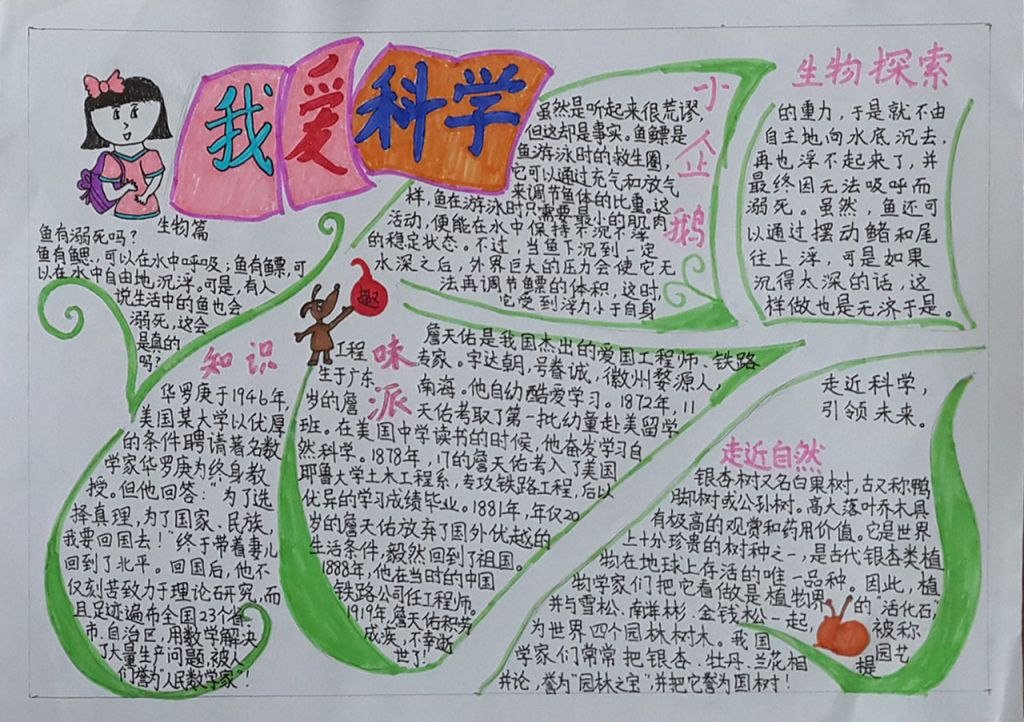 我爱科学
生物篇
鱼有溺死吗?
鱼有鳃,可以在水中呼吸;鱼有鳔,可
以在水中自由地沉浮。可是,有人
说生活中的鱼也会
溺死,这会
是真的
吗?
小企鹅
虽然是听起来很荒谬,
但这却是事实。鱼鳔是
鱼游泳时的救生圈,
它可以通过充气和放气
来调节鱼体的比重。这
样,鱼在游泳时只需要最小的肌肉
活动,便能在水中保持不沉不浮
的稳定状态。不过,当鱼下沉到一定
水深之后,外界巨大的压力会使它无
法再调节鱼鳔的体积,这时,
它受到浮力小于自身
生物探索
的重力,于是就不由
自主地向水底沉去,
再也浮不起来了,并
最终因无法吸呼而
溺死。虽然,鱼还可
以通过摆动鳍和尾
往上浮,可是如果
沉得太深的话,这
样做也是无济于是。
知识
华罗庚于1946年,
美国某大学以优厚
的条件聘请著名数
学家华罗庚为终身教
授。但他回答:“为了选
择真理,为了国家、民族,
我要回国去!”终于带着妻儿
回到了北平。回国后,他不
仅刻苦致力于理论石研究,而
且足迹遍布全国23个省
市.自治区,用数学解决
了大量生产问题,被人
们誉为“人民数学家”!
趣
味
派
工程
詹天佑是我国杰出的爱国工程师、铁路
专家。字达朝,号眷诚,徽州婺源人,
生于广东 南海。他自幼酷爱学习。1872年,11
岁的詹 天佑考取了第一批幼童赴美留学
班。在美国中学读书的时候,他奋发学习自
然.科学。1878年,17的詹天佑考入了美国
耶鲁大学土木工程系,专攻铁路工程,后以
优异的学习成绩毕业。1881年,年仅20
岁的詹天佑放弃了国外优越的
生活条件,毅然回到了祖国。
1888年,他在当时的中国
铁路公司任工程师。
1919年,詹天佑积劳
成疾,不幸逝
世了!
走近科学,
引领未来。
走近自然
银杏树又名白果树,古又称鸭
脚树或公孙树。高大落叶乔木具
有极高的观赏和药用价值。它是世界
上十分珍贵的树种之一,是古代银杏类植
物在地球上存活的唯一品种。因此,植
物学家们把它看做是植物界的“活化石”,
并与雪松.南洋彬.金钱松一起,被称
为世界四个园林树木。我国园艺
学家们常常把银杏.牡丹.兰花相提
并论,誉为“园林之宝”,并把它誉为国树!